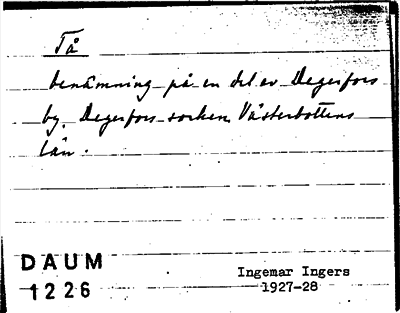 Tå
benämning på en del av Degerfors
by, Degerfors socken, Västerbottens
län.
DAUM
1226
Ingemar Ingers
1927-28